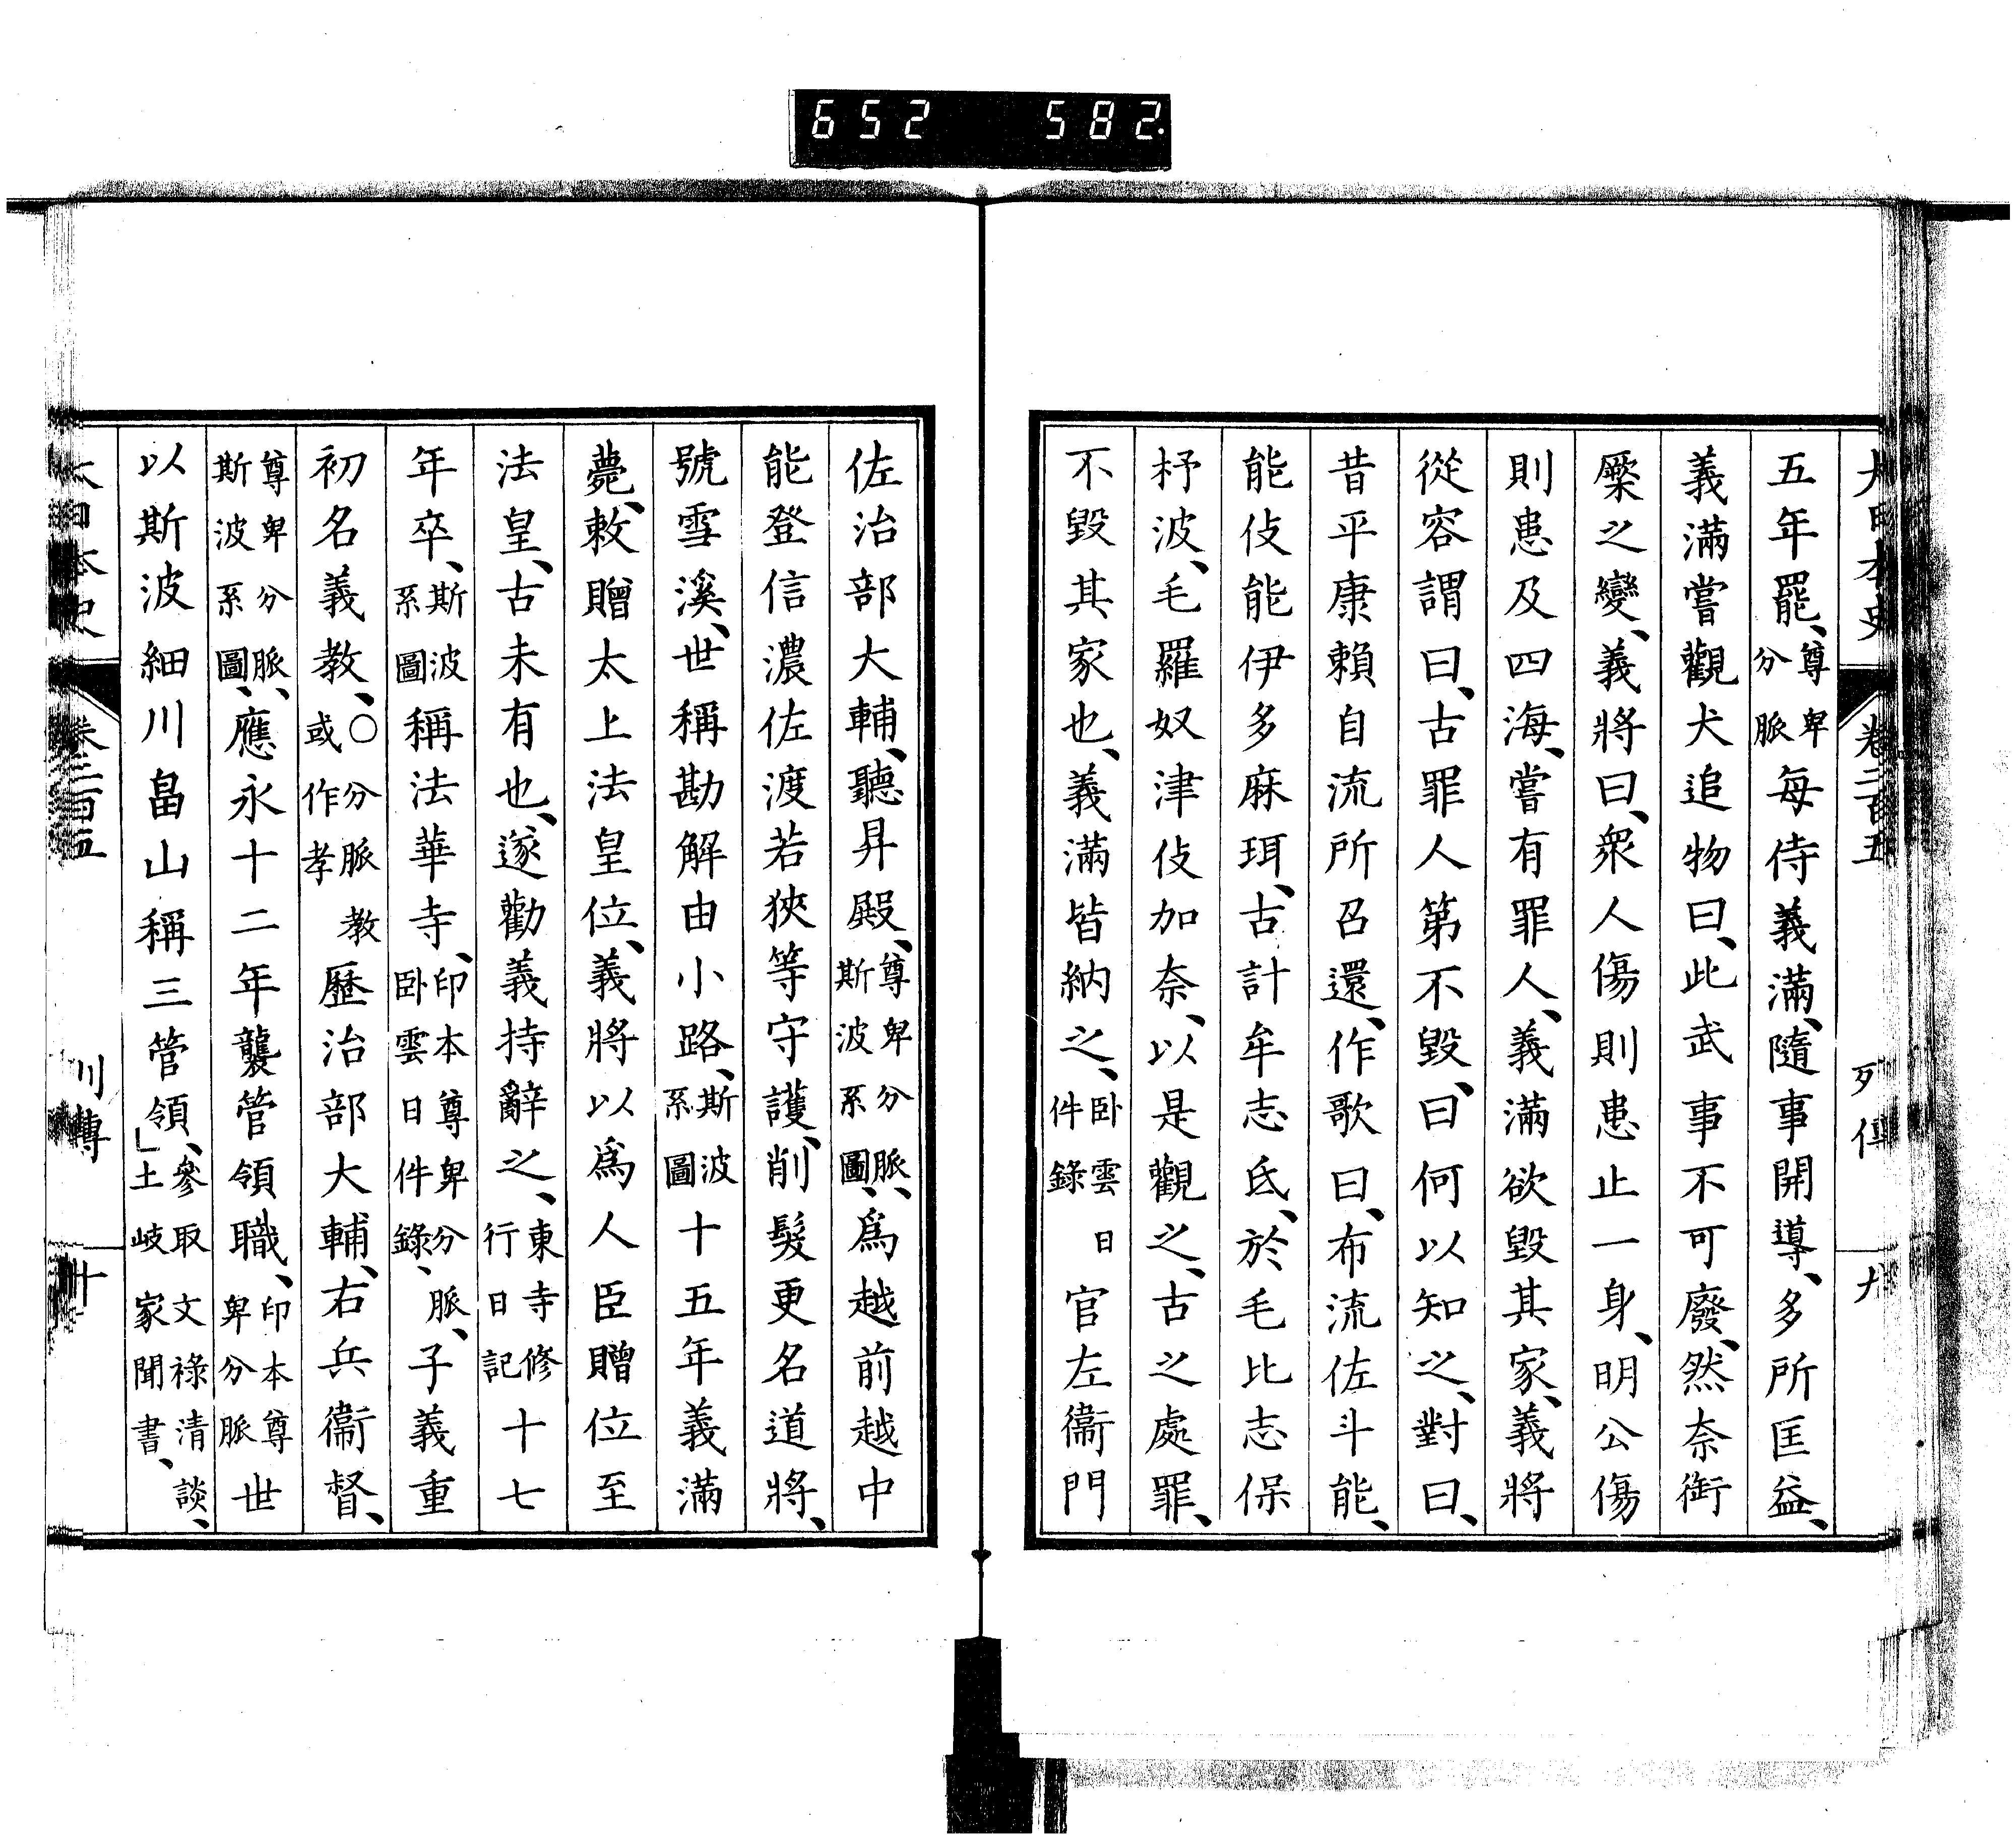 652 582
大日本史 卷二百五 列傳 九
五年罷、尊卑分脈每侍義滿、隨事開導、多所匡益、
義滿嘗觀犬追物曰、此武事不可廢、然奈銜
橜之變、義將曰、衆人傷則患止一身、明公傷
則患及四海、嘗有罪人、義滿欲毀其家、義將
從容謂曰、古罪人第不毀、曰、何以知之、對曰、
昔平康賴自流所召還、作歌曰、布流佐斗能、
能伎能伊多麻珥、古計牟志氐、於毛比志保
杼波、毛羅奴津伎加奈、以是觀之、古之處罪、
不毀其家也、義滿皆納之、臥雲日件錄官左衞門
佐治部大輔、聽昇殿、尊卑分脈、斯波系圖、爲越前越中
能登信濃佐渡若狹等守護、削髮更名道將、
號雪溪、世稱勘解由小路、斯波系圖十五年義滿
薨、敕贈太上法皇位、義將以爲人臣贈位至
法皇、古未有也、遂勸義持辭之、東寺修行日記十七
年卒、斯波系圖稱法華寺、印本尊卑分脈、臥雲日件錄、子義重
初名義教、○分脈教或作孝歷治部大輔、右兵衞督、
尊卑分脈、斯波系圖、應永十二年襲管領職、印本尊卑分脈世
以斯波細川畠山稱三管領、」參取文祿清談、土岐家聞書、
大日本史 卷二百五 列傳 十